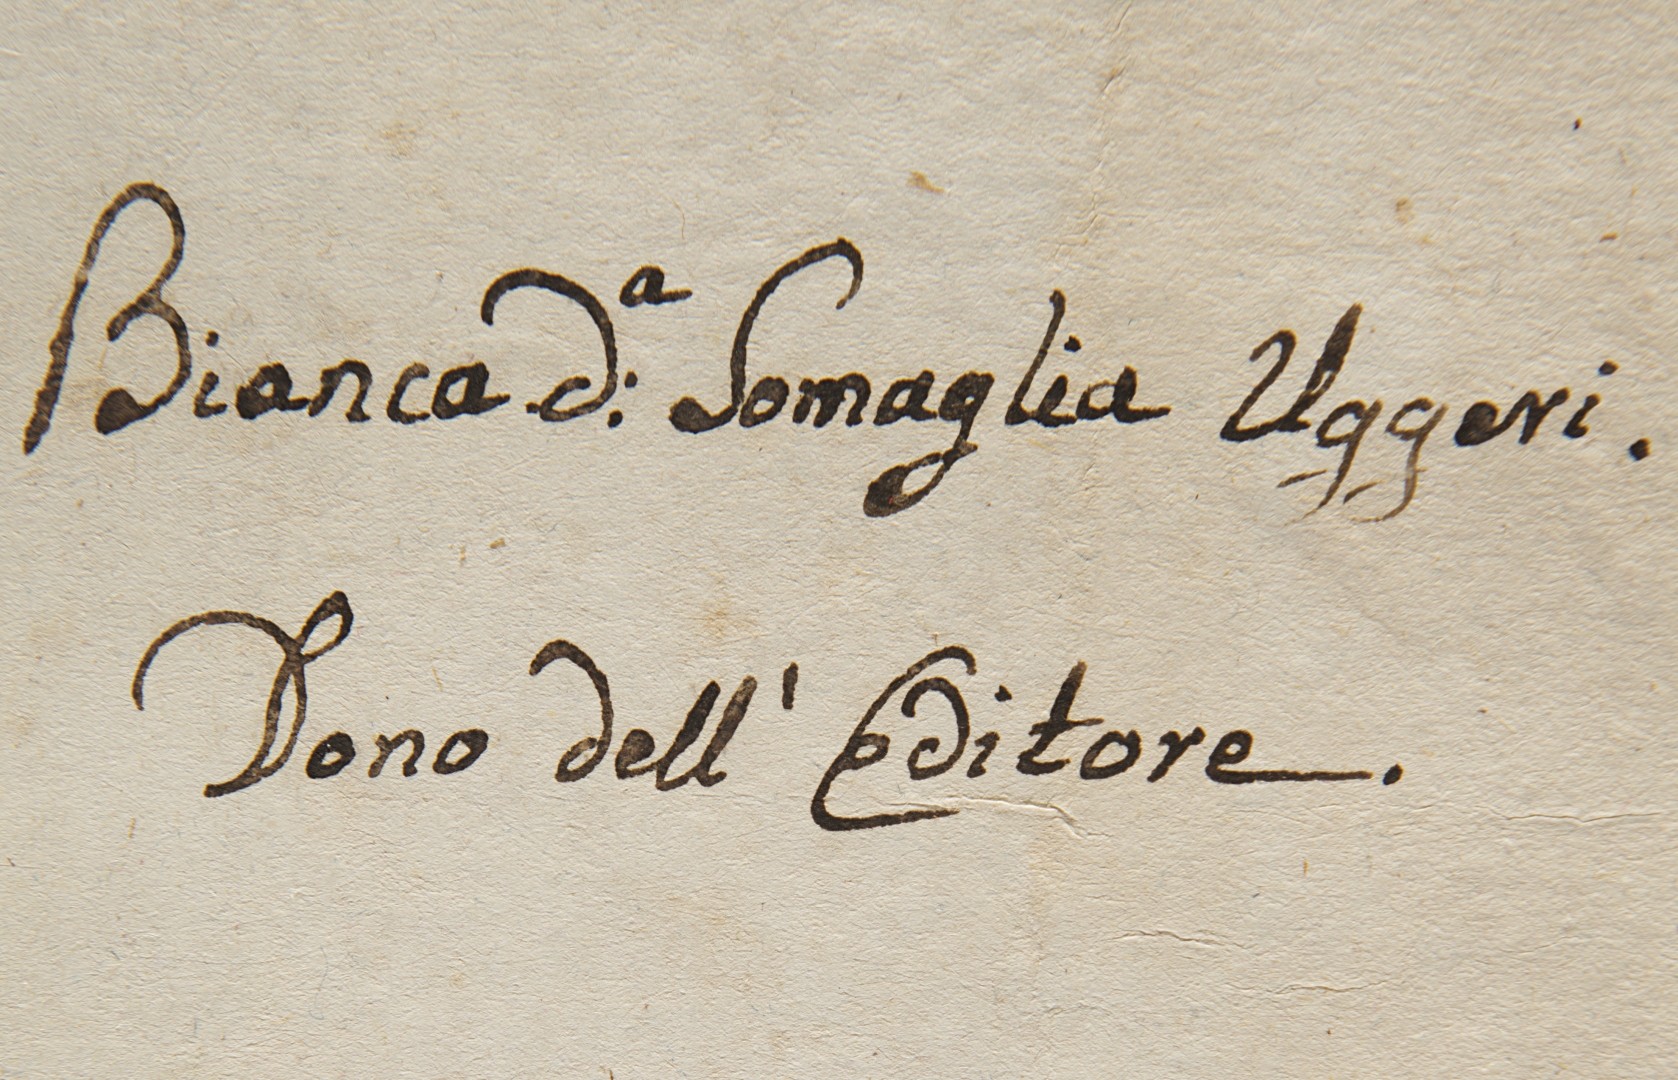 Bianca d:ª Somaglia Uggeri.
Dono dell' Editore.